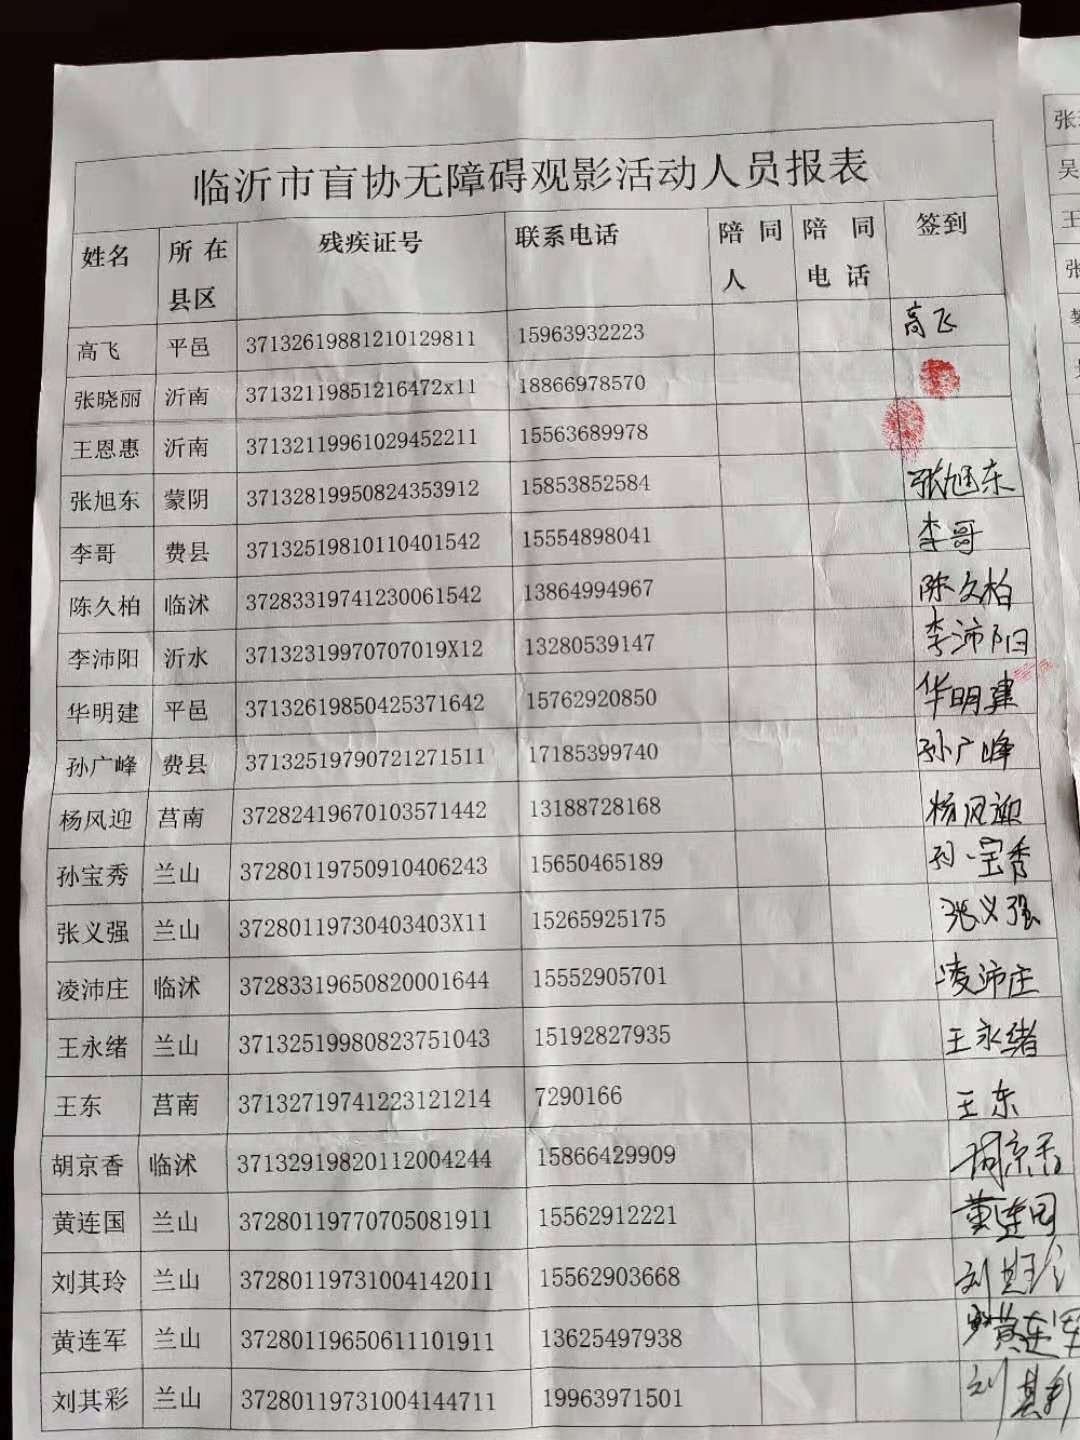 临沂市盲协无障碍观影活动人员报表
姓名 所在县区 残疾证号 联系电话 陪同人 陪同电话 签到
高飞 平邑 37132619881210129811 15963932223 高飞
张晓丽 沂南 37132119851216472x11 18866978570
王恩惠 沂南 37132119961029452211 15563689978
张旭东 蒙阴 37132819950824353912 15853852584 张旭东
李哥 费县 37132519810110401542 15554898041 李哥
陈久柏 临沭 37283319741230061542 13864994967 陈久柏
李沛阳 沂水 37132319970707019X12 13280539147 李沛阳
华明建 平邑 37132619850425371642 15762920850 华明建
孙广峰 费县 37132519790721271511 17185399740 孙广峰
杨风迎 莒南 37282419670103571442 13188728168 杨风迎
孙宝秀 兰山 37280119750910406243 15650465189 孙宝秀
张义强 兰山 37280119730403403X11 15265925175 张义强
凌沛庄 临沭 37283319650820001644 15552905701 凌沛庄
王永绪 兰山 37132519980823751043 15192827935 王永绪
王东 莒南 37132719741223121214 7290166 王东
胡京香 临沭 37132919820112004244 15866429909 胡京香
黄连国 兰山 37280119770705081911 15562912221 黄连国
刘其玲 兰山 37280119731004142011 15562903668 刘其玲
黄连军 兰山 37280119650611101911 13625497938 黄连军
刘其彩 兰山 37280119731004144711 19963971501 刘其彩
张
吴
王
张